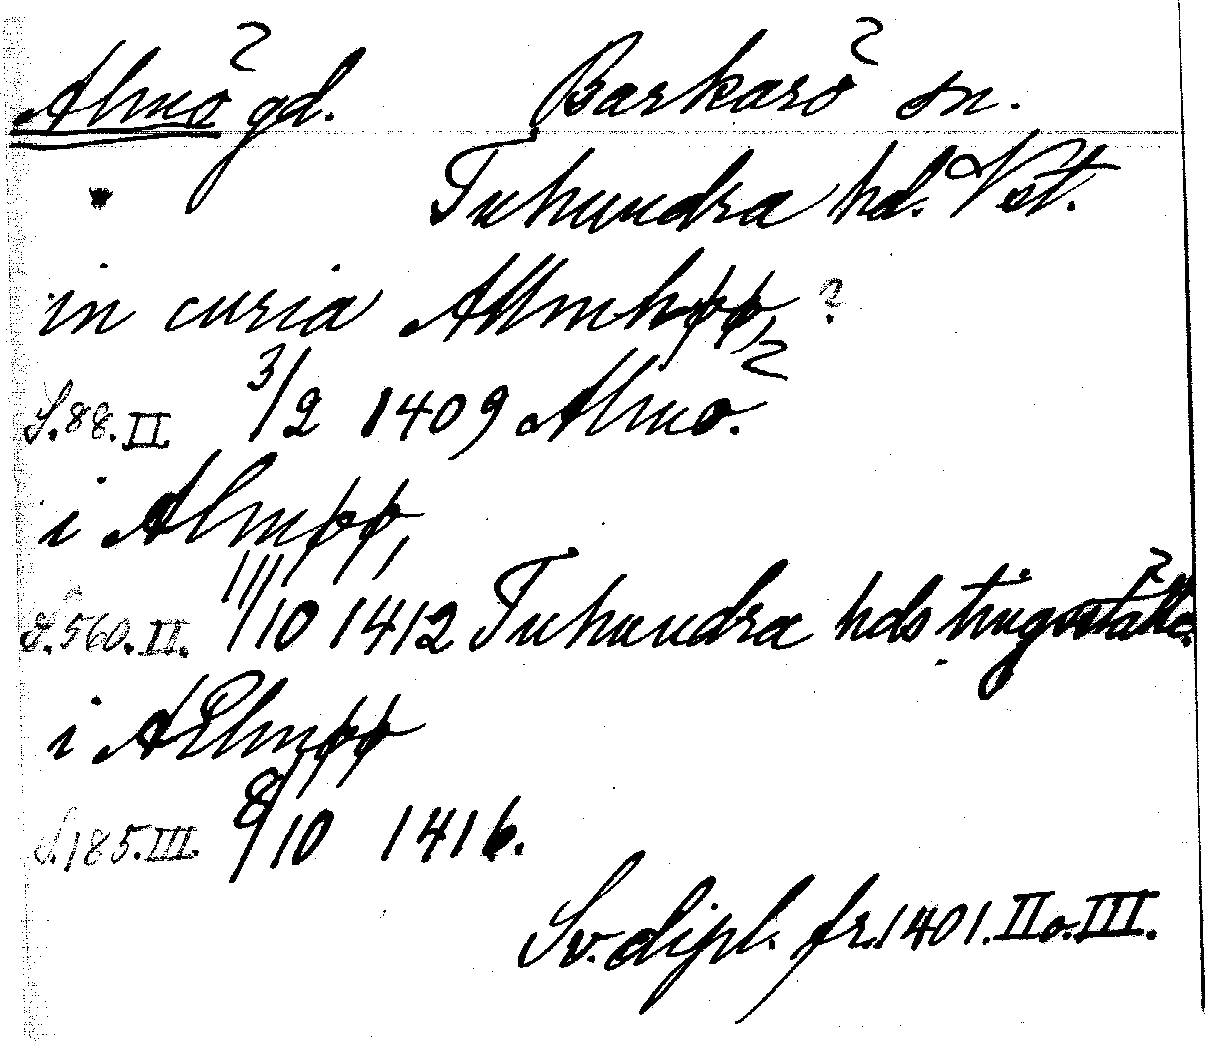 Almö gd. Barkarö sn.
Tuhundra hd. Vst.
in curia Allmhøø, ?
S. 88. II. 3/2 1409 Almö.
i Almøø,
S. 560. II. 11/10 1412 Tuhundra hds tingställe
i Ælmøø
S. 185. III. 8/10 1416.
Sv. dipl. fr. 1401. II o. III.